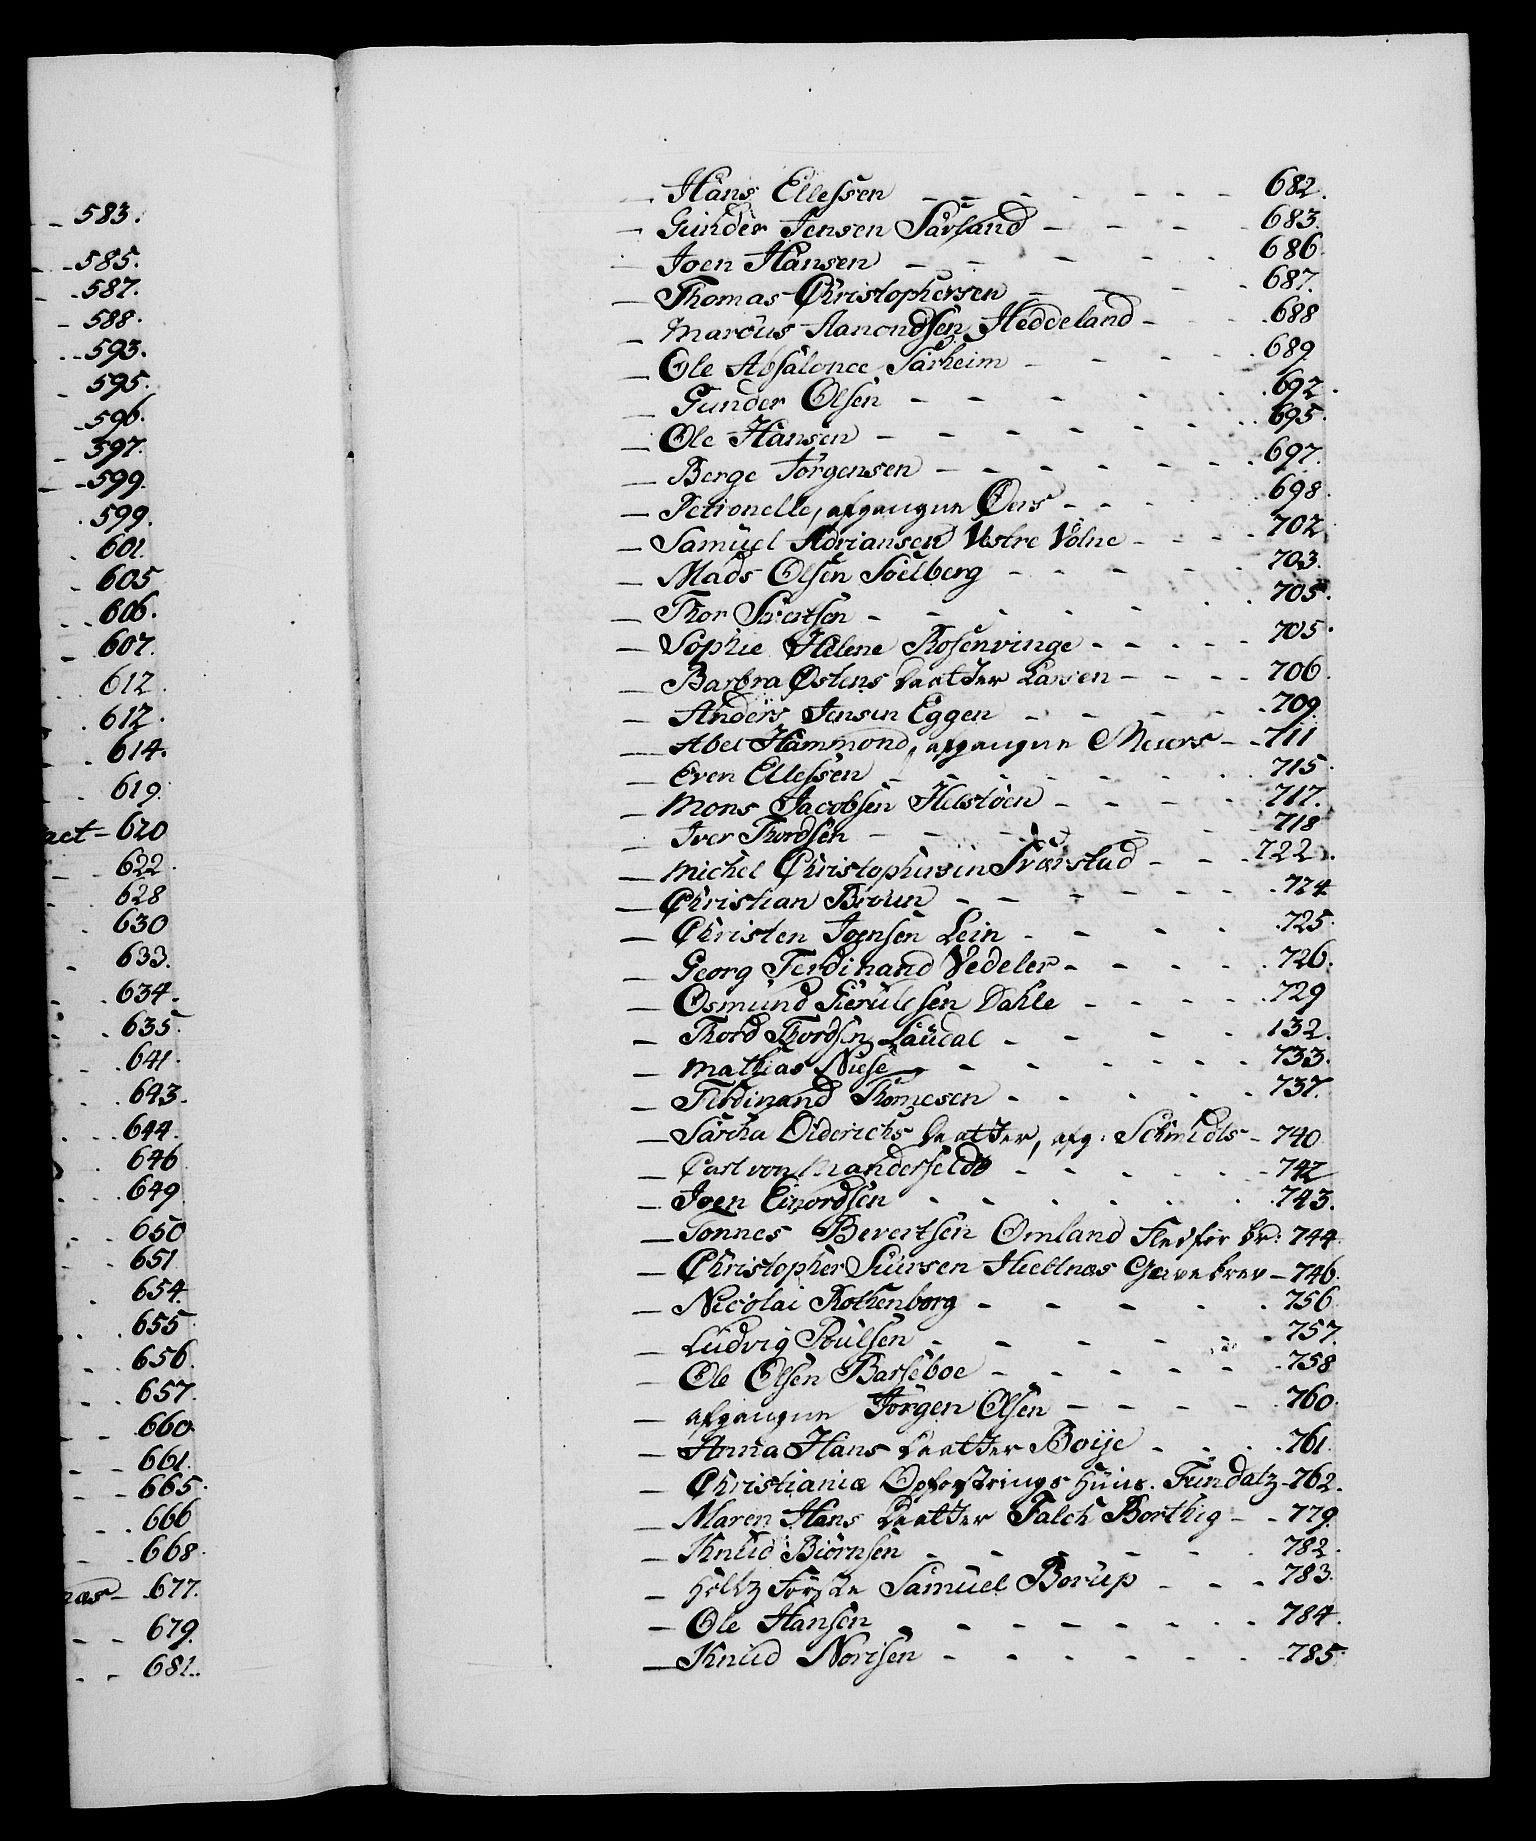 583.
585.
587.
588.
593.
595.
596.
597.
599.
599.
601.
605
606.
607.
612.
612.
614.
619.
act - 620
622.
628
630
633.
634.
635.
641.
643.
644.
646
649.
650
651
654.
655
656.
657.
660
661.
665.
666
668.
677.
679.
681.
— Hans Ellefsen - - - - - - 682.
— Gunder Jensen Sørland - - - - 683.
— Joen Hansen - - - - - 686.
— Thomas Christophersen - - - - 687.
— Marcus Aamondsen Heddeland - - 688
— Ole Absalonce Sarheim - - - - 689.
— Gunder Olsen - - - - - 692.
— Ole Hansen - - - - - - 695.
— Berge Jørgensen - - - - - - 697.
— Petronelle, afgangne Oers - - - - 698.
— Samuel Adriansen Vestre Vølne - - - - 702
— Mads Olsen Soelberg - - - - - 703.
— Thor Sivertsen - - - - - - 705.
— Sophie Helene Rosenvinge - - - - - 705.
— Barbra Østens Daatter Larsen - - - - 706.
— Anders Jensen Eggen - - - - - 709.
— Abel Hammond, afgangne Meiers - - 711
— Even Ellefsen - - - - - - 715.
— Mons Jacobsen Helstøen - - - - 717.
— Iver Thordsen - - - - - - 718
— Michel Christophersen Sværstad - - - 722.
— Christian Broun - - - - - - 724
— Christen Joensen Lein - - - - - 725.
— Georg Ferdinand Vedeler - - - - - 726.
— Osmund Fierulfsen Dahle - - - - - 729
— Thord Thordsen Laudal - - - - 132.
— Mathias Niese - - - - - - 733.
— Ferdinand Thomesen - - - - - 737.
— Sarha Diderichs Daatter, afg: Schmidts - 740
— Carl von Manderfeldt - - - - - 742
— Joen Einordsen - - - - - - 743.
— Tønnes Bevertsen Omland Fledfør br: 744
— Christopher Siursen Hiellnæs Gavebrev - 746.
— Nicolai Rothenborg - - - - - 756
— Ludvig Poulsen - - - - - - 757.
— Ole Olsen Barseboe - - - - - 758
— afgangne Jørgen Olsen - - - - 760.
— Anna Hans Daatter Boije - - - 761.
— Christiania Opfostrings Huus. Fundatz - 762.
— Maren Hans Daatter Falch Borthig - - 779.
— Knud Biørnsen - - - - - - 782.
— Samuel Borup - - - 783.
— Ole Hansen - - - - - - 784.
— Knud Noresen - - - - - - 785.